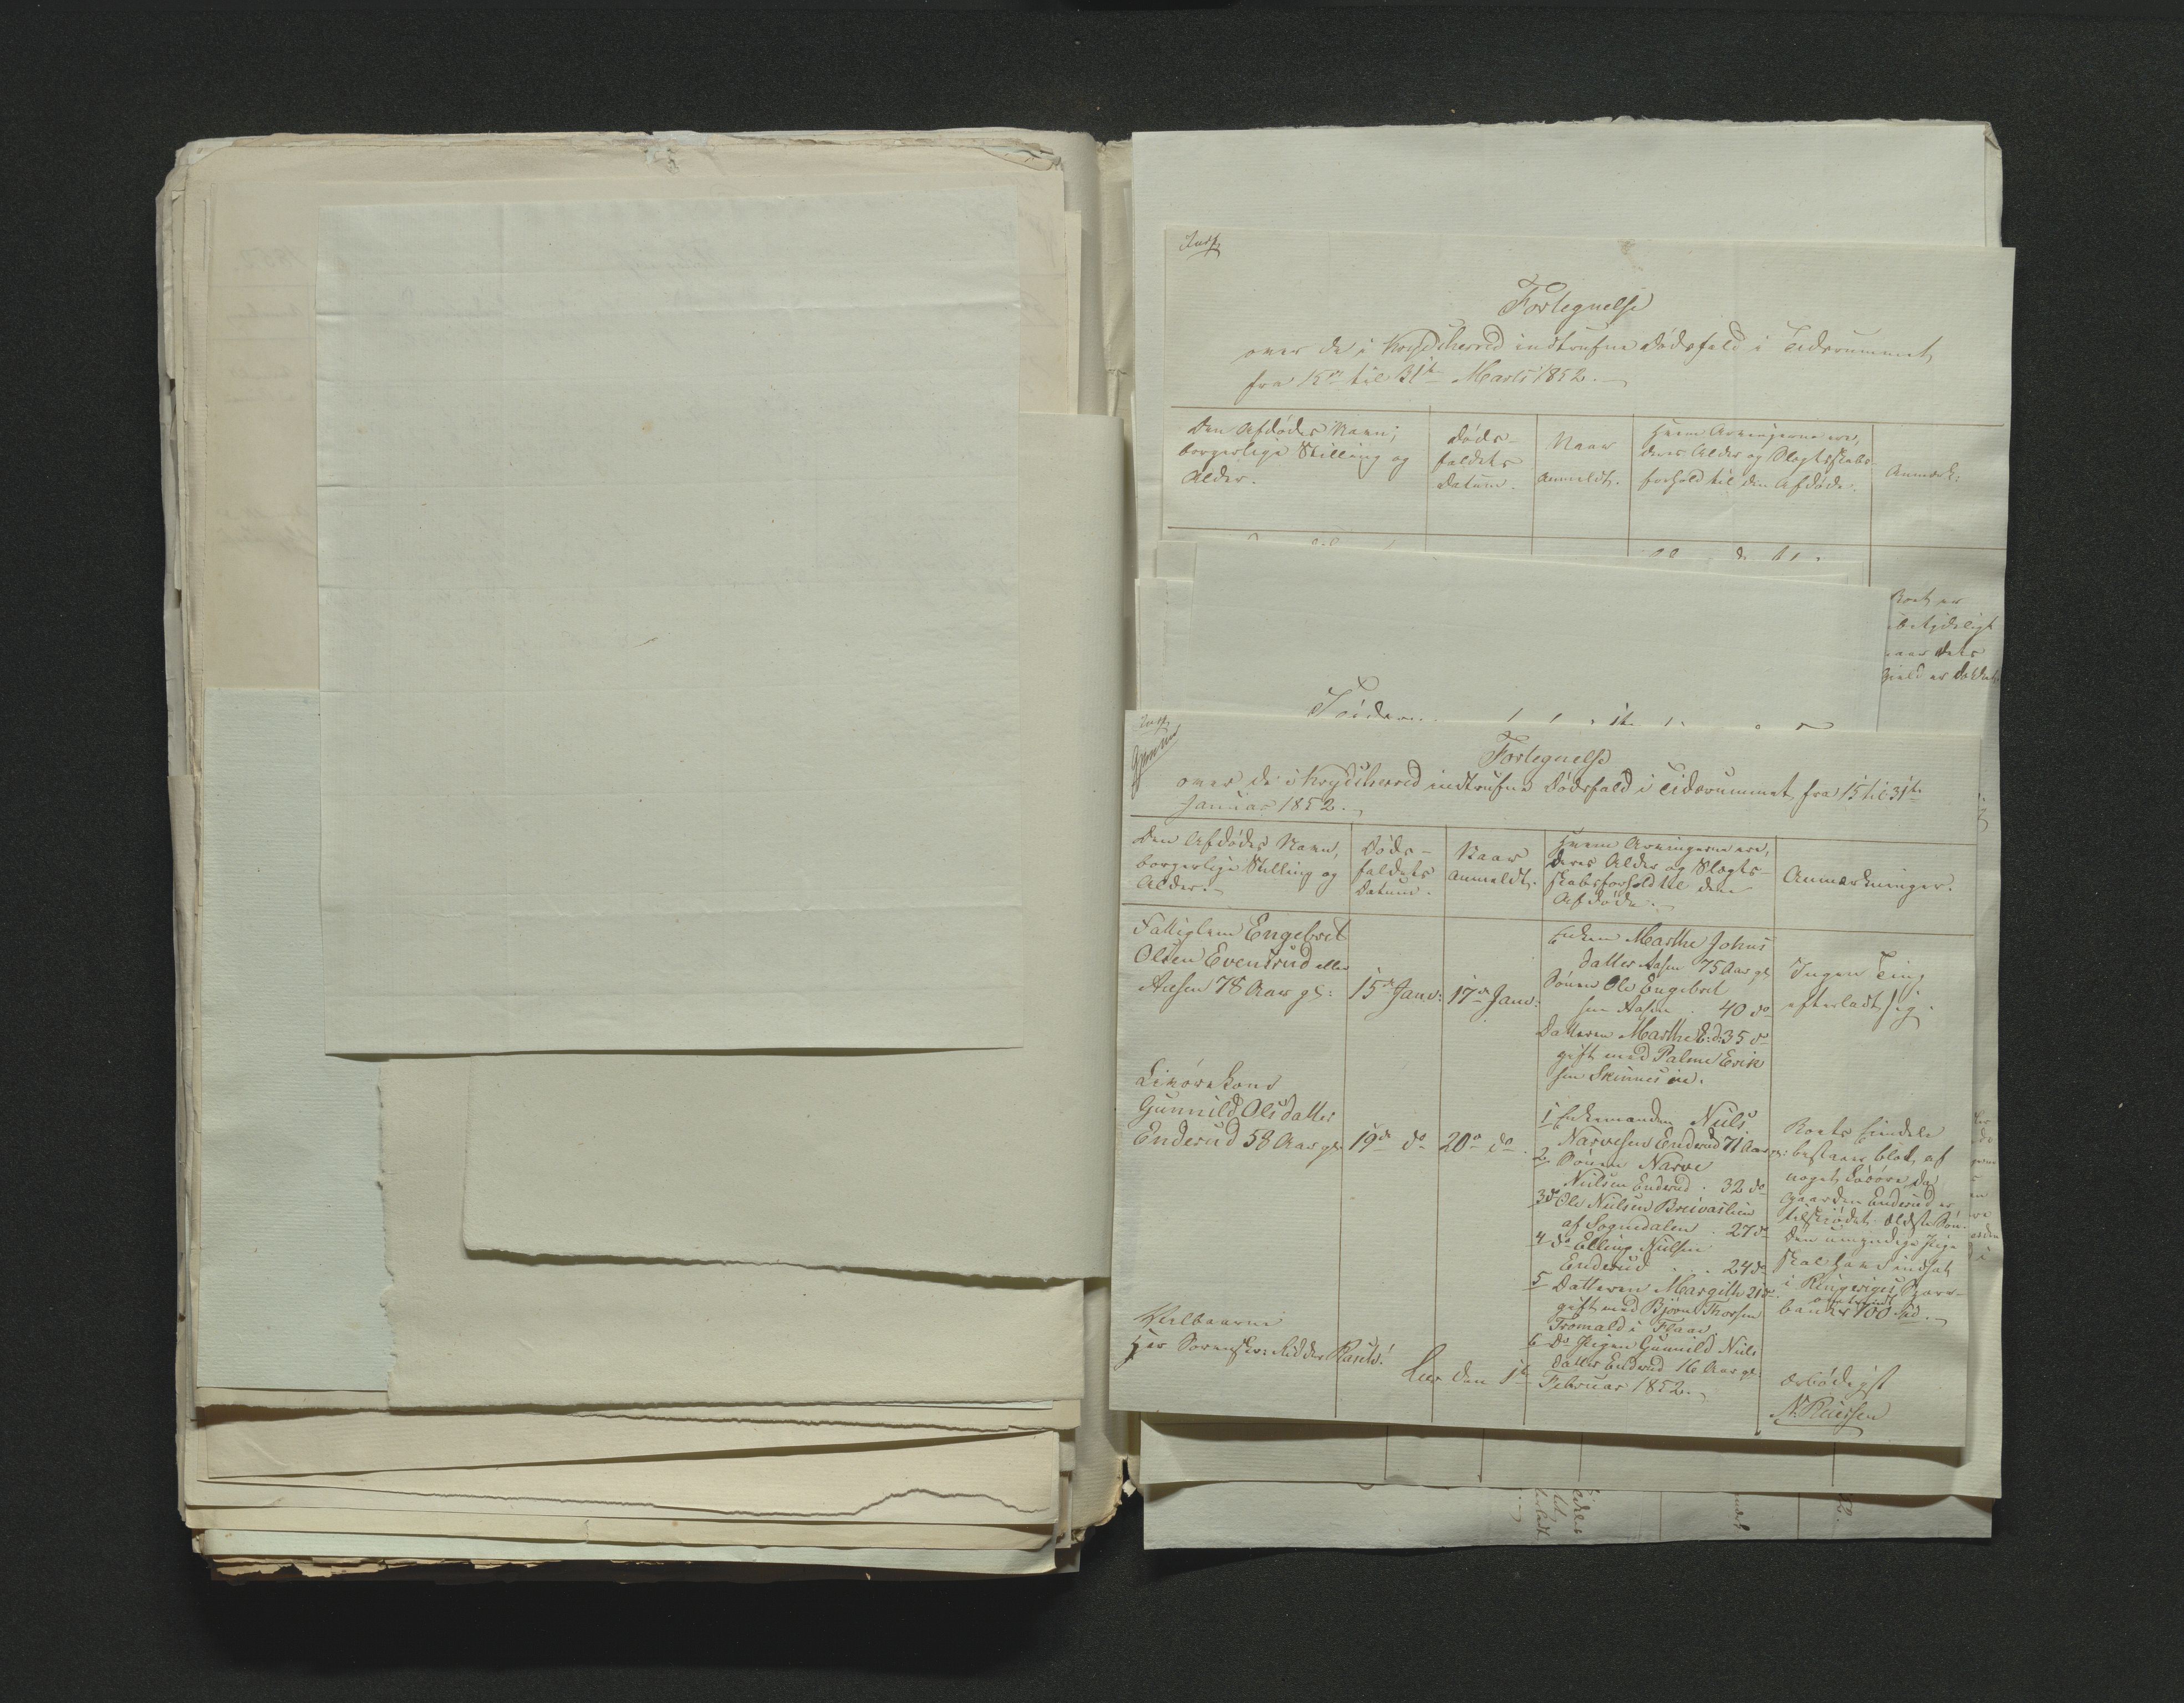 Indf.
Fortegnelse
over de i Krydsherred indtrufne Dødsfald i Tidsrummet
fra 15de til 31te Marts 1852.
Den Afdødes Navn,
borgerlige Stilling og
Alder.
Døds-
faldets
Datum.
Naar
anmeldt.
Hvem Arvingerne ere,
deres Alder og Slægtskabs-
forhold til den Afdøde.
Anmærk:
Boet er
ubetydeligt
Fortegnelse
over de i Krydsherred indtrufne Dødsfald i Tidsrummet fra 15 til 31te
Januar 1852.
Den Afdødes Navn,
borgerlige Stilling og
Alder.
Døds-
faldets
Datum.
Naar
anmeldt.
Hvem Arvingerne ere,
deres Alder og Slægts-
skabsforhold til den
Afdøde.
Anmærkninger.
Fattiglem Engebret
Olsen Evensrud eller
Aasen 78 Aar gl:
15de Janv:
17de Janv:
Enken Marthe Johns
datter Aasen 75 Aar gl
Sønnen Ole Engebret
sen Aasen . 40 do
Datteren Marthe E:d: 35 do
gift med Palme Erik
sen Skinnes eie.
Ingen Ting
efterladt sig.
Gunnild Olsdatter
Enderud 58 Aar gl:
19de do
20de do
1 Enkemanden Niels
Narvesen Enderud 71 Aar gl:
2 Sønnen Narve
Nielsen Enderud . 32 do
3 do Ole Nielsen Breivaslien
af Sognedalen . 27 do
4 do Elling Nielsen
Enderud . . 24 do
5 Datteren Margith 21 do
gift med Bjørn Thorsen
Tromald i Flaae.
6 Do Pigen Gunnild Niels
datter Enderud 16 Aar gl.
Boets Eiendele
bestaar blot af
noget Løsøre, da
Gaarden Enderud er
tilskjødet ældste Søn.
Den umyndige Pige
skal have indsat
i Ringeriges Spare-
banken omtrent 100 Spd.
Velbaarne
Hr Sorenskr: Ridder Rasch!
Lier den 1te Februar 1852.
ærbødigst